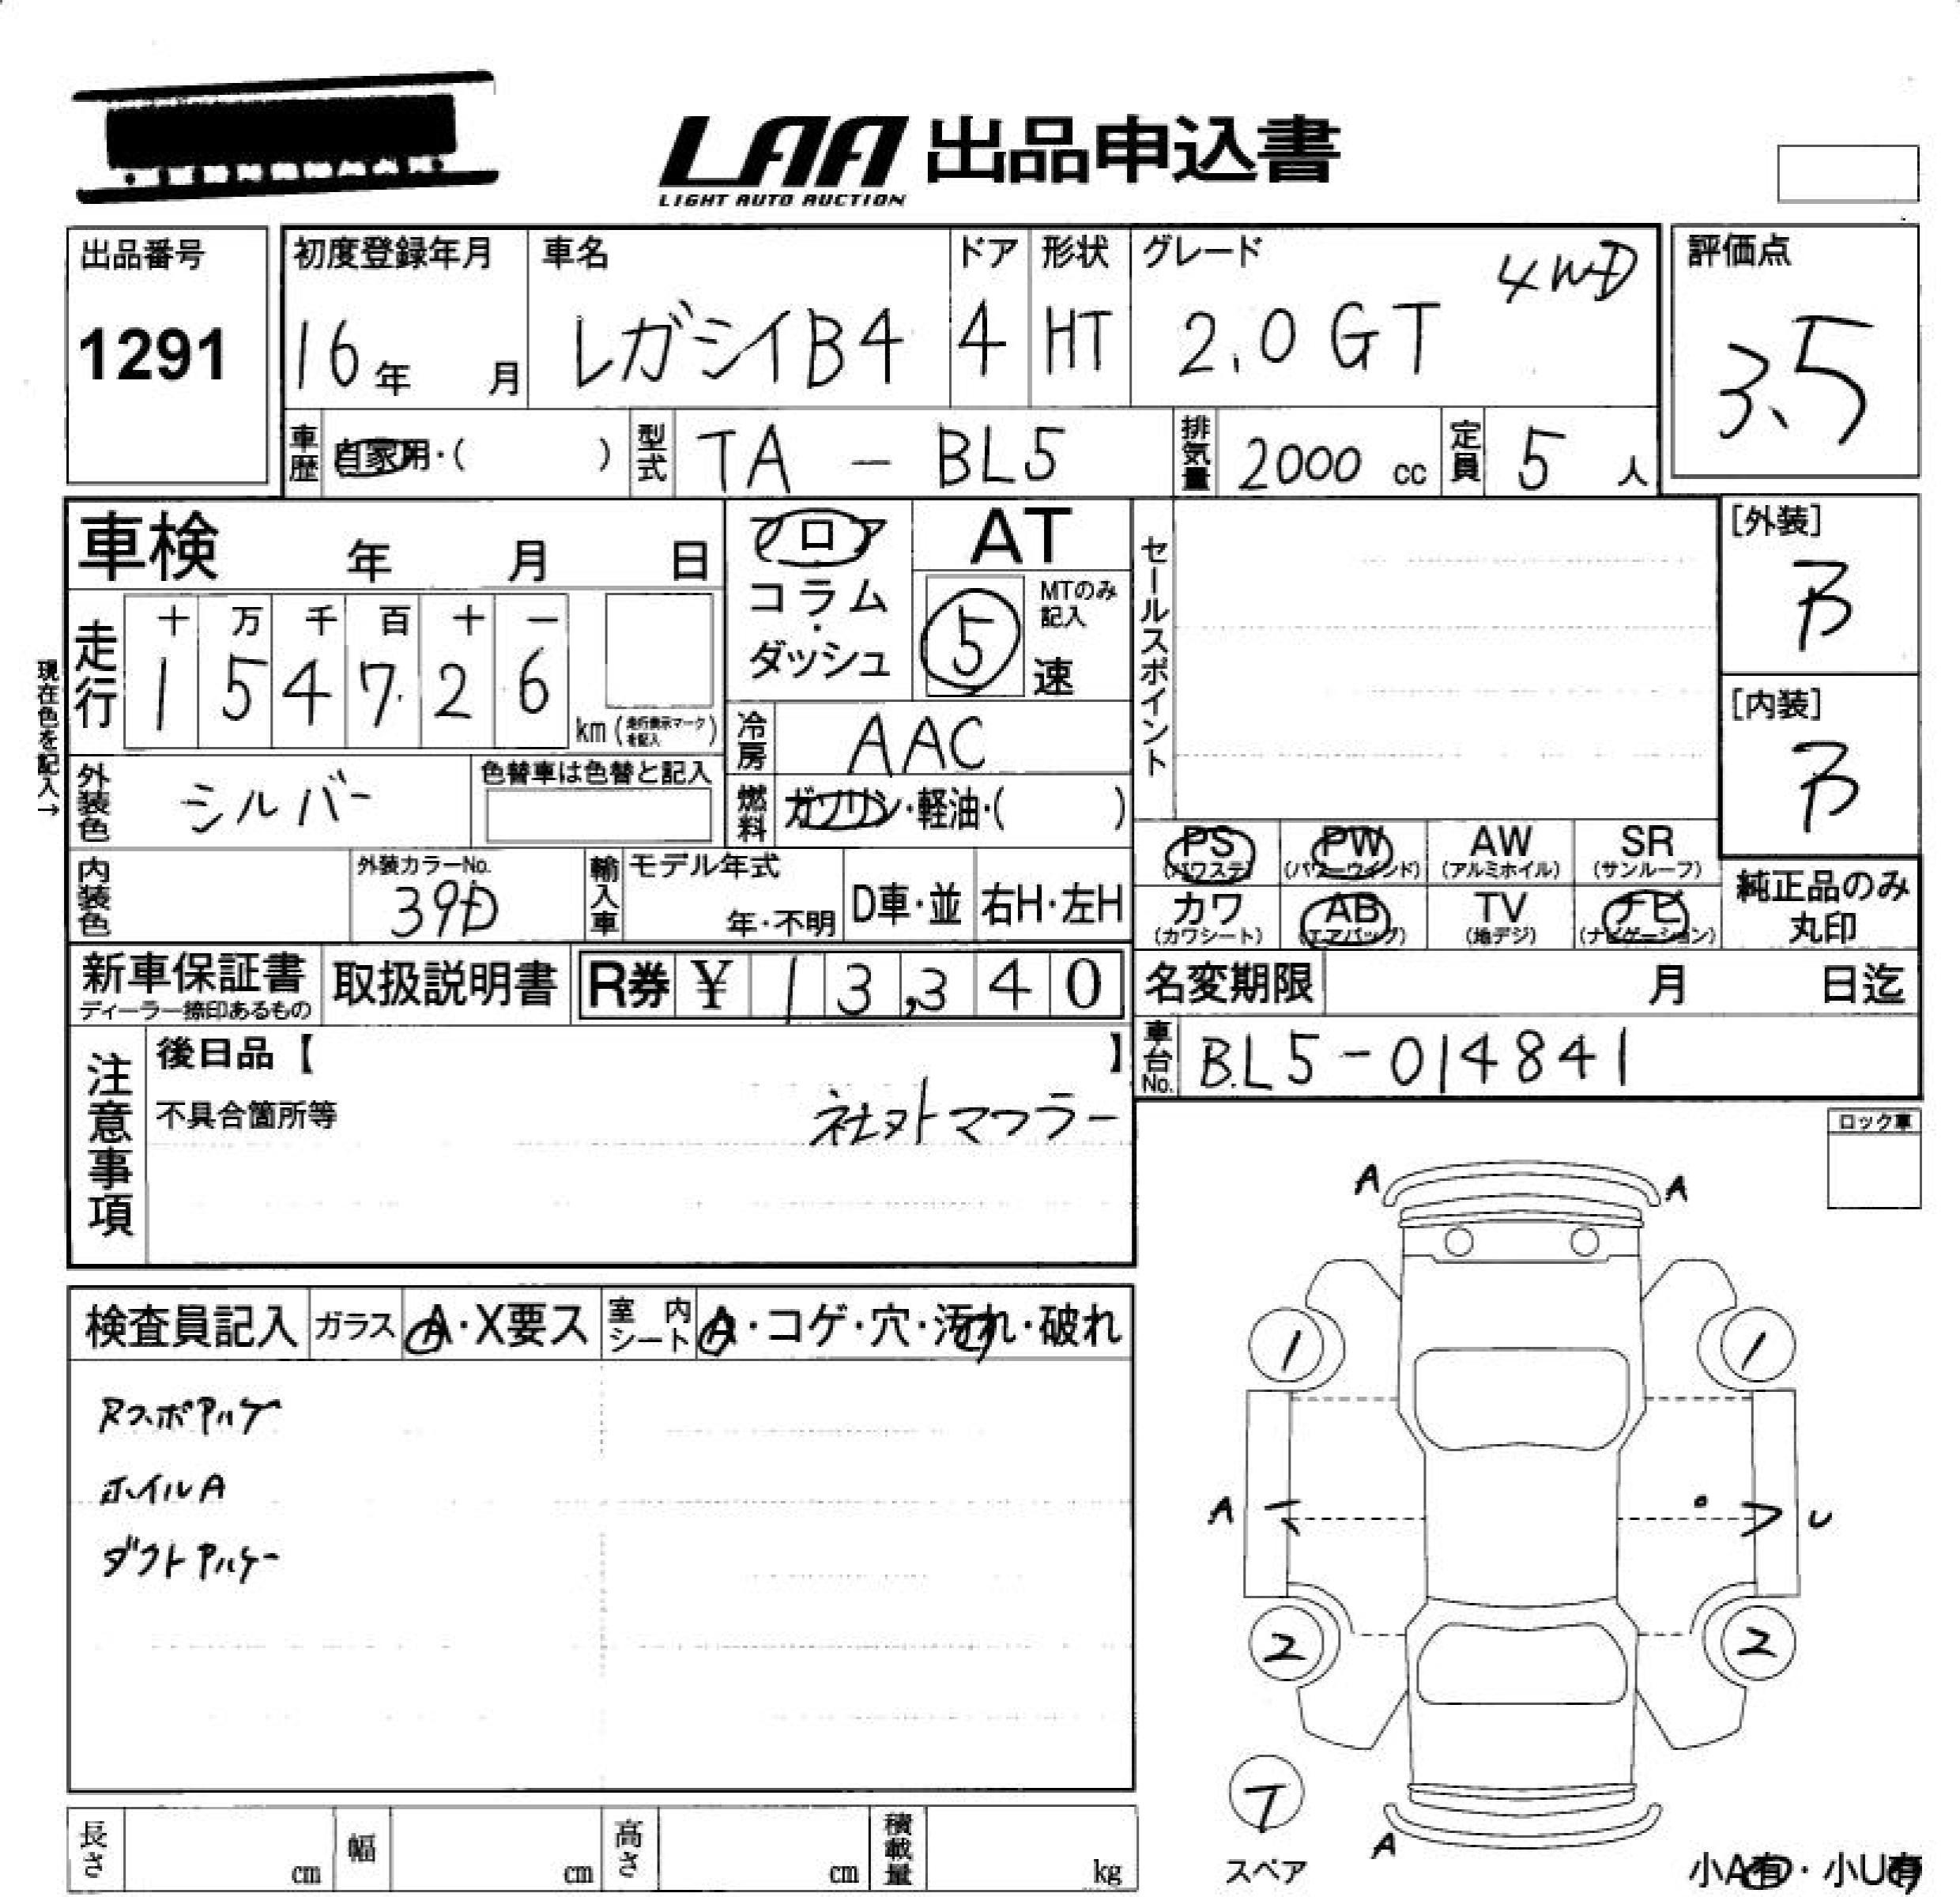 LAA 出品申込書
LIGHT AUTO AUCTION
出品番号
1291
初度登録年月
16年 月
車名
レガシイB4
ドア
4
形状
HT
グレード
4WD
2.0GT
評価点
3.5
車歴 自家用・( )
型式 TA - BL5
排気量 2000 cc
定員 5 人
車検 年 月 日
走行
十 万 千 百 十 一
1 5 4 7 2 6
km (走行表示マークを記入)
現在色を記入→
フロア
コラム・
ダッシュ
AT
5 速
MTのみ記入
セールスポイント
[外装]
B
[内装]
B
冷房 AAC
外装色 シルバー
色替車は色替と記入
燃料 ガソリン・軽油・( )
PS (パワステ)
PW (パワーウインド)
AW (アルミホイル)
SR (サンルーフ)
カワ (カワシート)
AB (エアバッグ)
TV (地デジ)
ナビ (ナビゲーション)
純正品のみ
丸印
内装色
外装カラーNo.
39D
輸入車
モデル年式
年・不明
D車・並
右H・左H
新車保証書
ディーラー捺印あるもの
取扱説明書
R券 ¥ 13,340
名変期限 月 日迄
車台No. BL5-014841
注意事項
後日品【 】
不具合箇所等
社外マフラー
ロック車
A A
検査員記入
ガラス A・X要ス
室内シート A・コゲ・穴・汚れ・破れ
1 1
ホイルA
A U
2 2
T
スペア
A
小A有・小U有
長さ cm
幅 cm
高さ cm
積載量 kg